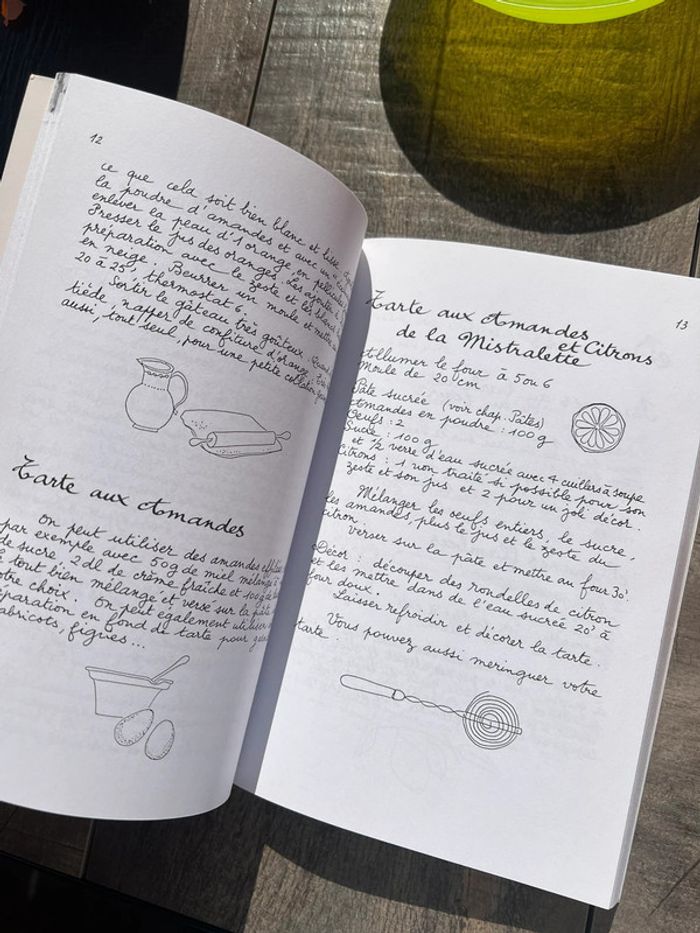 12
ce que cela soit bien blanc et lisse
la poudre d'amandes et avec un
enlever la peau d'1 orange en pellicules
Presser le jus des oranges. Les ajouter à
préparation avec le zeste et les blancs
en neige. Beurrer un moule et mettre
20 à 25', thermostat 6.
Sortir le gâteau très goûteux. Quand
tiède, napper de confiture d'orange.
aussi, tout seul, pour une petite collation
Tarte aux Amandes
On peut utiliser des amandes
par exemple avec 50g de miel mélangé
de sucre, 2 dl de crème fraîche et 100 g
tout bien mélangé et versé sur la pâte
votre choix. On peut également utiliser
préparation en fond de tarte pour
abricots, figues...
13
Tarte aux Amandes
et Citrons
de la Mistralette
Allumer le four à 5 ou 6
Moule de 20 cm
Pâte sucrée (voir chap. Pâtes)
Amandes en poudre : 100 g
Oeufs : 2
Sucre : 100 g
et 1/2 verre d'eau sucrée avec 4 cuillers à soupe
Citrons : 1 non traité si possible pour son
zeste et son jus et 2 pour un joli décor.
Mélanger les oeufs entiers, le sucre,
les amandes, plus le jus et le zeste du
citron.
Verser sur la pâte et mettre au four 30'.
Décor : découper des rondelles de citron
et les mettre dans de l'eau sucrée 20' à
four doux.
Laisser refroidir et décorer la tarte.
Vous pouvez aussi meringuer votre
tarte.